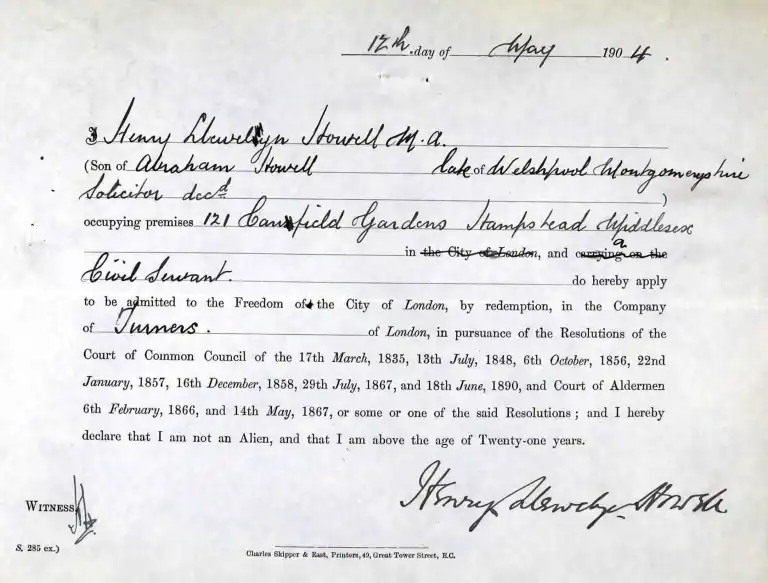 12th day of May 1904.
I Henry Llewellyn Howell M.A.
(Son of Abraham Howell late of Welshpool Montgomeryshire
Solicitor decd)
occupying premises 121 Canfield Gardens Hampstead Middlesex
in the City of London, and carrying on the a
Civil Servant. do hereby apply
to be admitted to the Freedom of the City of London, by redemption, in the Company
of Turners. of London, in pursuance of the Resolutions of the
Court of Common Council of the 17th March, 1835, 13th July, 1848, 6th October, 1856, 22nd
January, 1857, 16th December, 1858, 29th July, 1867, and 18th June, 1890, and Court of Aldermen
6th February, 1866, and 14th May, 1867, or some or one of the said Resolutions; and I hereby
declare that I am not an Alien, and that I am above the age of Twenty-one years.
Henry Llewellyn Howell
WITNESS
S. 285 ex.)
Charles Skipper & East, Printers, 49, Great Tower Street, E.C.